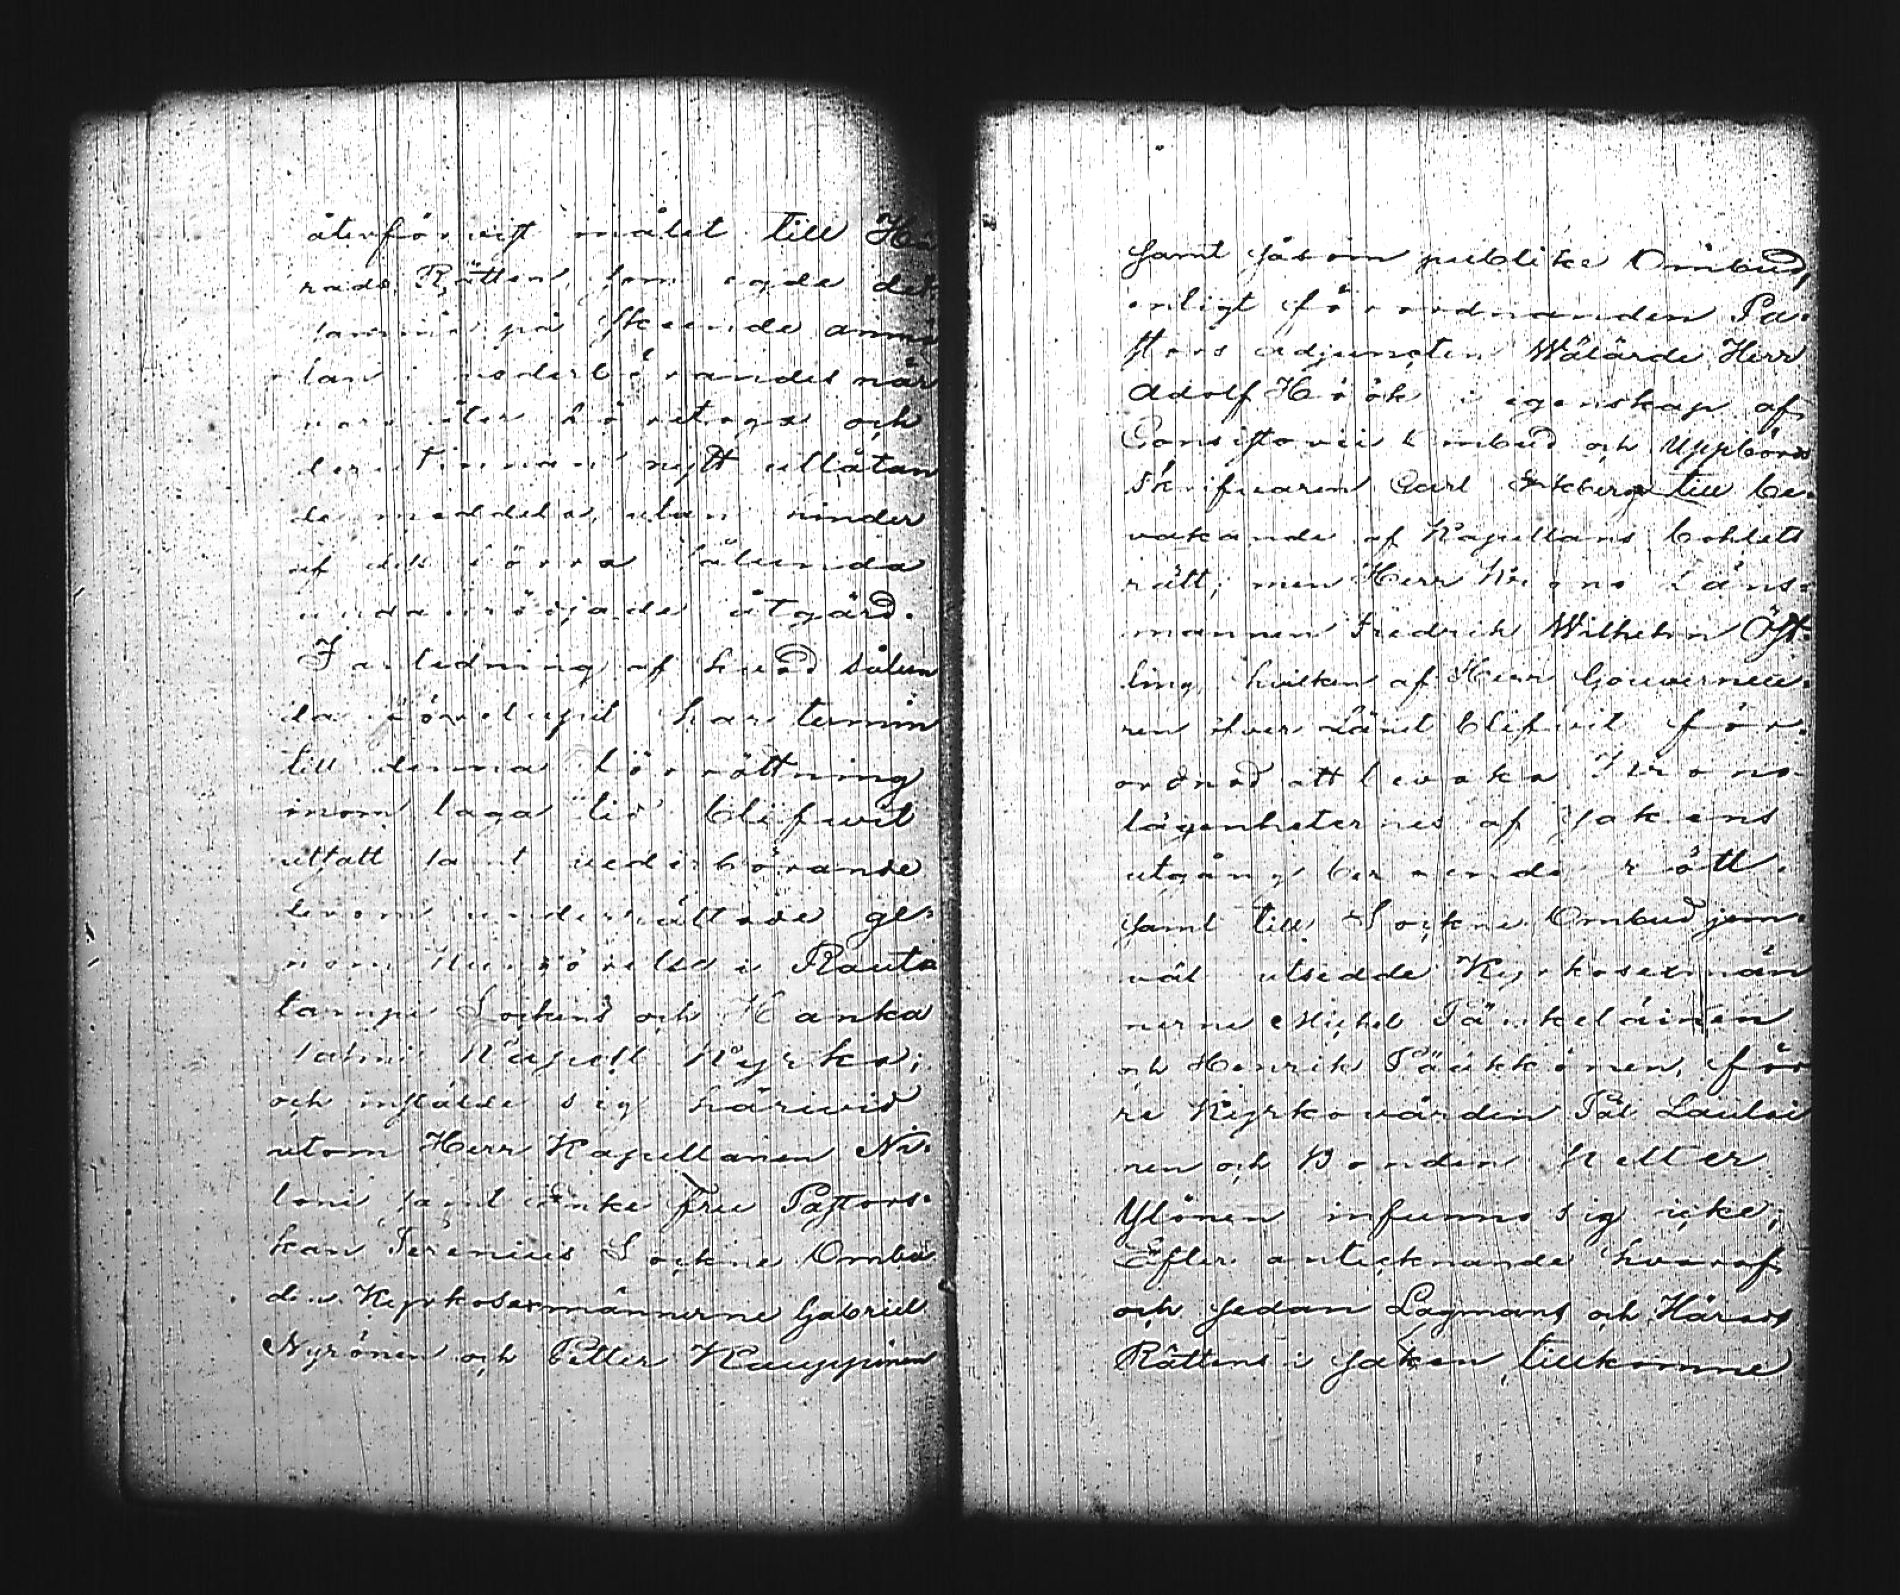 återförvist målet till Hä
rads Rätten, som egde det
samma på skeende anmä
lan i vederbörandes när
varo åter företaga och
deruti annat nytt utlåtan
de meddela, utan hinder
af dess förra sålunda
undanröjade åtgärd.
I anledning af hvad sålun
da förelupit har termin
till denna förrättning
inom laga tid blifvit
utsatt samt vederbörande
derom underrättade ge-
nom kungörelse i Rauta
lampi Sockens och Hanka
salmi Kapell Kyrko;
och inställde sig härivid
utom Herr Kapellanen
samt Enke Fru Pastors-
kan Perenius Sockne Ombu
den Kyrkosexmännerne Gabriel
Nyrönen och Petter Kauppinen
samt såsom publike Ombud,
enligt förordnanden Pa-
stors adjuncten Wälärde Herr
Adolf Höök i egenskap af
Consistorii ombud och Uppbörds
skrifvaren Carl Ekberg till be-
vakande af Kapellans bohlets
rätt; men Herr Krono Läns-
mannen Fredrik Wilhelm Öst-
ling, hvilken af Herr Gouverneu-
ren öfver Länet blifvit för-
ordnad att bevaka Krono-
lägenheternes af sakens
utgång beroende rätt
samt till Sockne Ombud jem-
väl utsedde Kyrkosexmän
nerne Michel Pänkeläinen
och Henrik Paukkonen, för
re Kyrkovärden Pål Laulai
nen och Bonden Petter
Ylönen infunno sig icke;
Efter antecknande hvaraf
och sedan Lagmans och Härads
Rättens i saken tillkomne